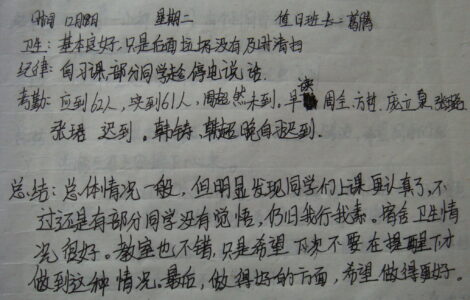 时间 12月9日 星期二 值日班长:葛腾
卫生:基本良好,只是后面垃圾没有及时清扫
纪律:自习课,部分同学趁停电说话.
考勤:应到62人,实到61人,周超然未到.早读 周全.方甜.庞立昊.张
张琦 迟到.韩铸,韩超晚自迟到.
总结:总体情况一般,但明显发现同学们上课更认真了,不
过还是有部分同学没有觉悟,仍旧我行我素。宿舍卫生情
况很好。教室也不错,只是希望下次不要在提醒下才
做到这种情况。最后,做得好的方面,希望做得更好。